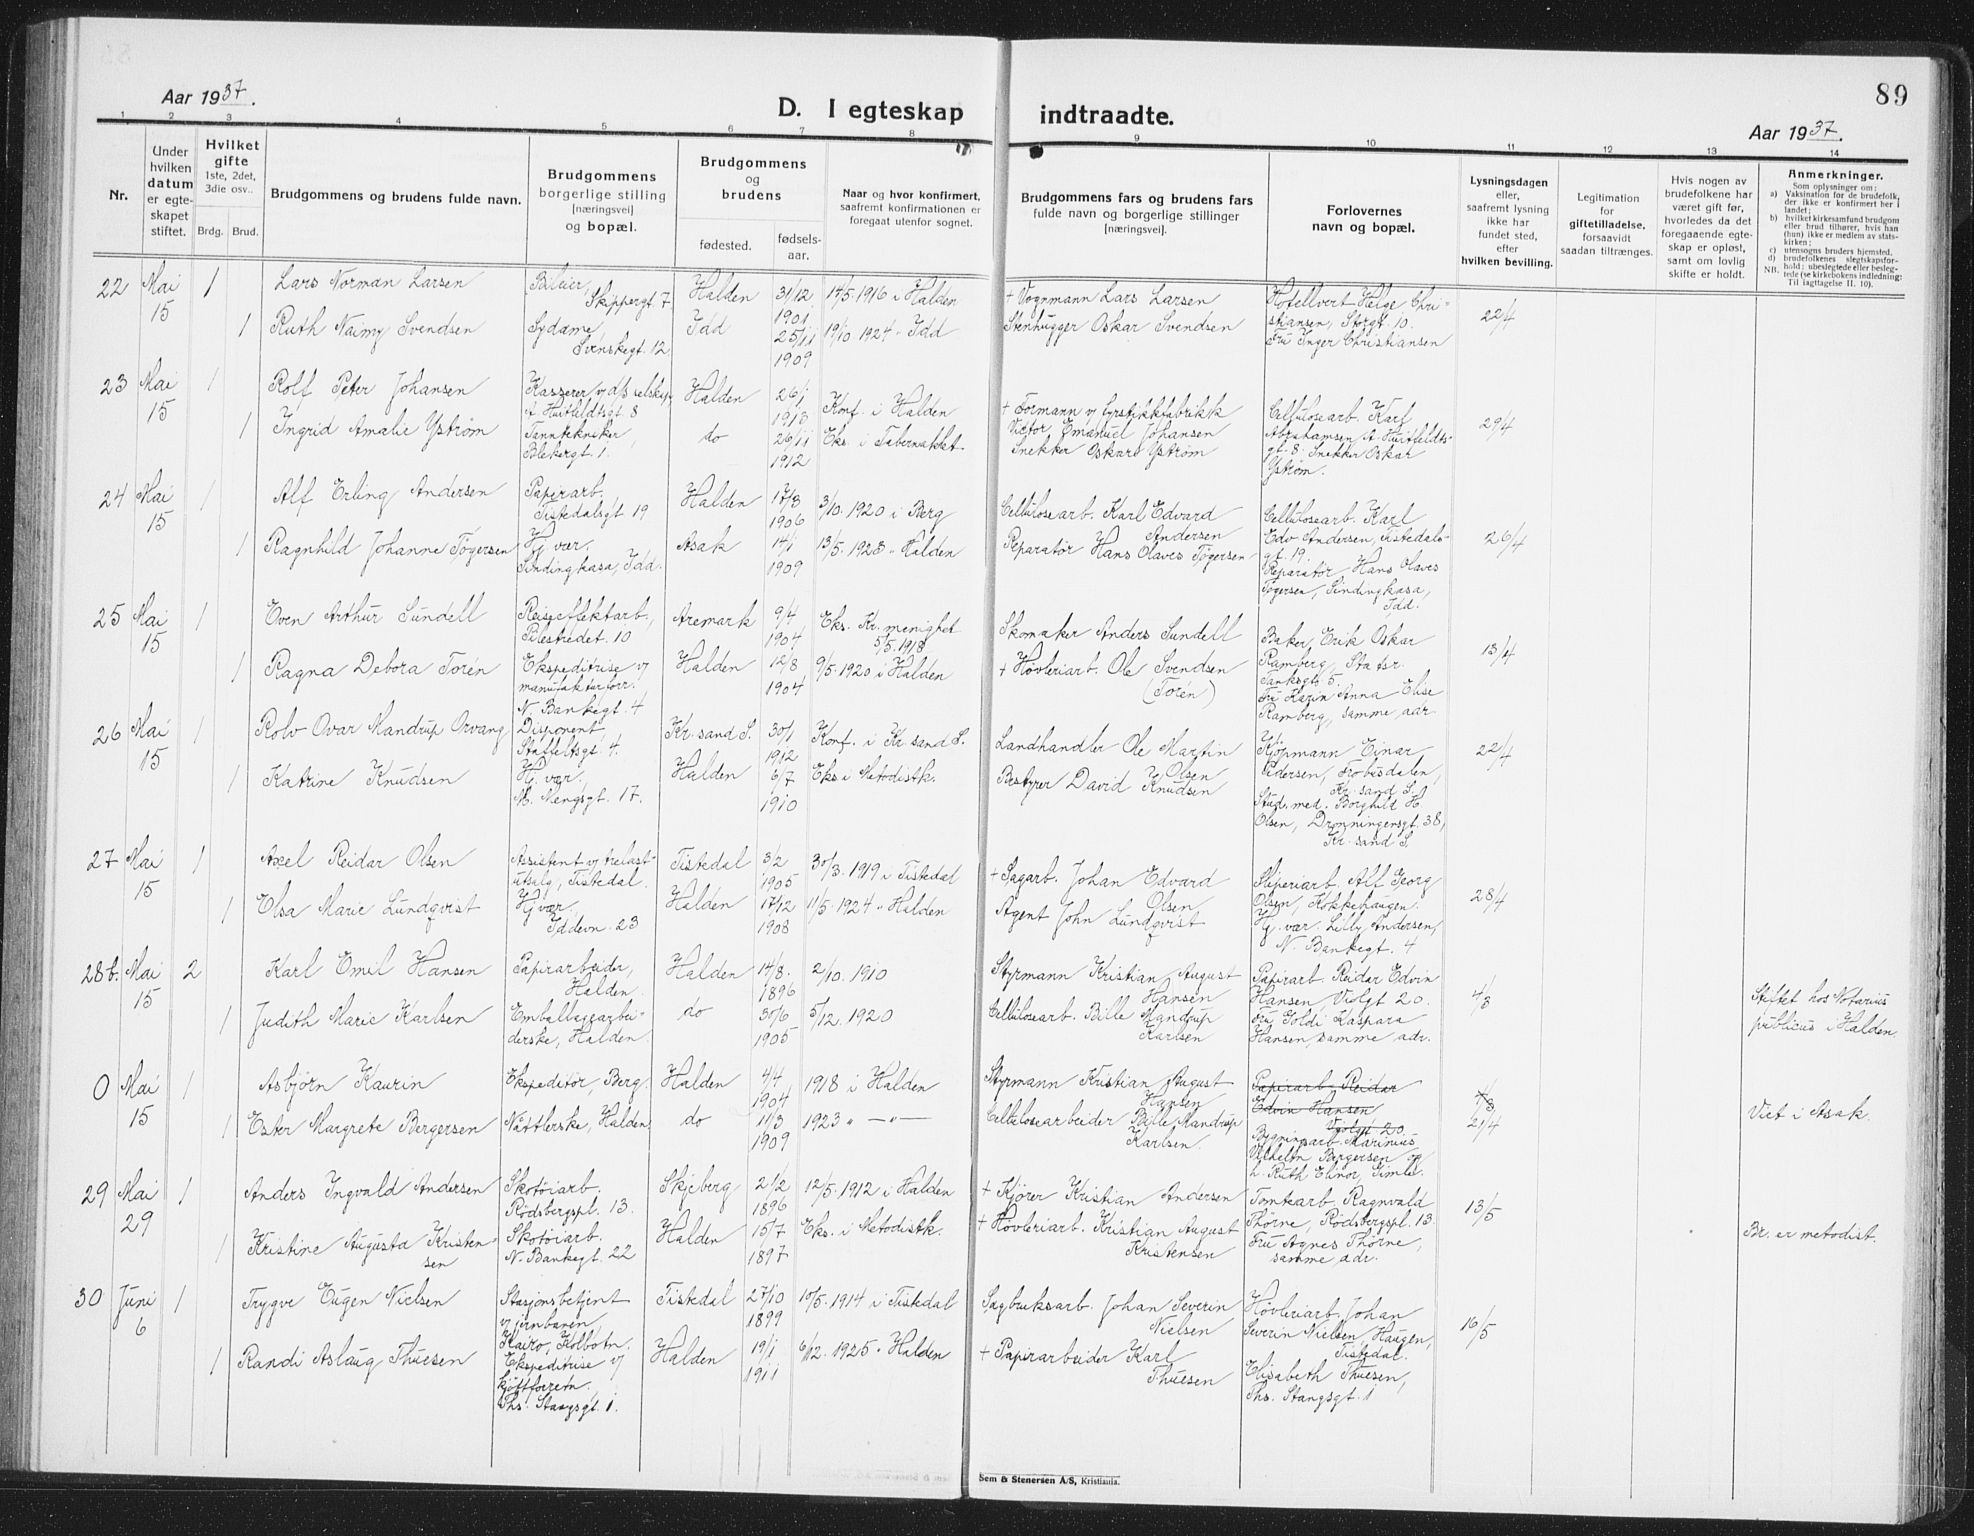 89
Aar 1937.
D. I egteskap indtraadte.
Aar 1937.
1 2 3 4 5 6 7 8 9 10 11 12 13 14
Nr.
Under hvilken datum er egte-skapet stiftet.
Hvilket gifte
1ste, 2det, 3die osv..
Brdg. Brud.
Brudgommens og brudens fulde navn.
Brudgommens borgerlige stilling [næringsvei] og bopæl.
Brudgommens og brudens
fødested.
fødsels-aar.
Naar og hvor konfirmert, saafremt konfirmationen er foregaat utenfor sognet.
Brudgommens fars og brudens fars fulde navn og borgerlige stillinger [næringsvei].
Forlovernes navn og bopæl.
Lysningsdagen eller, saafremt lysning ikke har fundet sted, efter hvilken bevilling.
Legitimation for giftetilladelse, forsaavidt saadan tiltrænges.
Hvis nogen av brudefolkene har været gift før, hvorledes da det foregaaende egte-skap er opløst, samt om lovlig skifte er holdt.
Anmerkninger.
Som oplysninger om:
a) Vaksination for de brudefolk, der ikke er konfirmert her i landet;
b) hvilket kirkesamfund brudgom eller brud tilhører, hvis han (hun) ikke er medlem av stats-kirken;
c) utensogns bruders hjemsted,
d) brudefolkenes slegtskapsfor-hold: ubeslegtede eller besleg-tede (se kirkebokens indledning:
NB. Til iagttagelse II. 10).
22 Mai 15 1 Lars Norman Larsen Skippergt. 7 Halden 31/12 1901 14/5 1916 i Halden + Vognmann Lars Larsen Hotellvert Helge Chri-stiansen, Storgt. 10. 22/4
1 Ruth Naimy Svendsen Sydame, Svenskegt. 12 Idd 25/11 1909 19/10 1924 " Idd Stenhugger Oskar Svendsen Fru Inger Christiansen
23 Mai 15 1 Rolf Peter Johansen Kasserer v/ d/s selskap A. Huitfeldtsgt. 8 Halden 26/1 1913 Konf. i Halden + Formann v/ fyrstikkfabrikk Victor Emanuel Johansen Cellulosearb. Karl Abrahamsen A. Huitfeldts-gt. 8. 29/4
1 Ingrid Amalie Ystrøm Tanntekniker, Blekergt. 1. do 26/11 1912 Eks. i Tabernaklet Snekker Oskar Ystrøm Snekker Oskar Ystrøm.
24 Mai 15 1 Alf Erling Andersen Papirarb., Tistedalsgt 19 Halden 17/3 1906 3/10. 1920 i Berg Cellulosearb. Karl Edvard Andersen Cellulosearb. Karl Edv. Andersen, Tistedals-gt. 19. 26/4
1 Ragnhild Johanne Tøgersen Hj. vær. Sindingkasa, Idd. Asak 14/1 1909 13/5. 1923 " Halden Reparatør Hans Olaves Tøgersen Reparatør Hans Olaves Tøgersen, Sindingkasa, Idd.
25 Mai 15 1 Even Arthur Sundell Reiseeffektarb., Blestredet. 10 Aremark 9/4 1904 Eks. Kr. menighet 5/5. 1918 Skomaker Anders Sundell Baker Erik Oskar Ramberg, Statsr. Tanksgt. 5. 13/4
1 Ragna Debora Torén Ekspeditrise v/ manufakturforr. N. Bankegt. 4 Halden 12/8 1904 9/5. 1920 i Halden + Høvleriarb. Ole Svendsen (Torén) Fru Karin Anna Elise Ramberg, samme adr.
26 Mai 15 1 Rolv Ovar Mandrup Orvang Disponent, Staffeltsgt. 4. Kr. sand S. 30/1 1912 Konf. i Kr. sand S. Landhandler Ole Martin Olsen Kjøpmann Einar Pedersen, Frobusdalen, Kr. sand S. 22/4
1 Katrine Knudsen Hj. vær., M. Mengsgt. 17. Halden 6/7 1910 Eks i Metodistk. Bestyrer David Knudsen Stud. med. Borghild H. Olsen, Dronningensgt. 38, Kr. sand S.
27 Mai 15 1 Axel Reidar Olsen Assistent v/ trelast-utsalg, Tistedal. Tistedal 3/2 1905 30/3. 1919 i Tistedal + Sagarb. Johan Edvard Olsen Sliperiarb. Alf Georg Olsen, Kokkehaugen. 28/4
1 Elsa Marie Lundqvist Hj vær, Iddevn. 23 Halden 17/12 1908 11/5. 1924 " Halden Agent John Lundqvist Hj. vær. Lilly Andersen, N. Bankegt. 4
28b. Mai 15 2 Karl Emil Hansen Papirarbeider, Halden. Halden 14/8. 1896 2/10. 1910 Styrmann Kristian August Hansen Papirarb. Reidar Edvin Hansen, Violgt 20. 4/3 Stiftet hos Notarius publicus i Halden.
1 Judith Marie Karlsen Emballagearbei-derske, Halden. do 30/6 1905 5/12. 1920 Cellulosearb. Bille Mandrup Karlsen Fru Goldi Kaspara Hansen, samme adr.
0 Mai 15 1 Asbjørn Kaurin Ekspeditør, Berg. Halden 4/4 1904 1918 i Halden Styrmann Kristian August Hansen Papirarb. Reidar Edvin Hansen Violgt 20 4/3 21/4 Viet i Asak.
1 Ester Margrete Bergersen Nåttlerske, Halden. do 11/3 1909 1923 " — " — Cellulosearbeider Bille Mandrup Karlsen. Bygningsarb. Marinius Vilhelm Bergersen og h. Ruth Elinor, Gimle.
29 Mai 29 1 Anders Ingvald Andersen Skotøiarb. Rødsbergspl. 13. Skjeberg 21/2 1896 12/5. 1912 i Halden + Kjører Kristian Andersen Tomtearb. Ragnvald Thørne, Rødsbergspl. 13. 13/5
1 Kristine Augusta Kristen-sen Skotøiarb. N. Bankegt. 22 Halden 15/7 1897 Eks. i Metodistk. + Høvleriarb. Kristian August Kristensen Fru Agnes Thørne, samme adr. Br. er metodist.
30 Juni 6 1 Trygve Eugen Nielsen Stasjonsbetjent v/ jernbanen, Kairo, Kolbotn. Tistedal 27/10 1899 10/5. 1914 i Tistedal Sagbruksarb. Johan Severin Nielsen Høvleriarb. Johan Severin Nielsen, Haugen, Tistedal. 16/5
1 Randi Aslaug Thuesen Ekspeditrise v/ kjøttforretn., Ths. Stangsgt. 1. Halden 19/1 1911 6/12. 1925 " Halden + Papirarbeider Karl Thuesen Elisabeth Thuesen, Ths. Stangsgt. 1
Sem & Stenersen A/S, Kristiania.